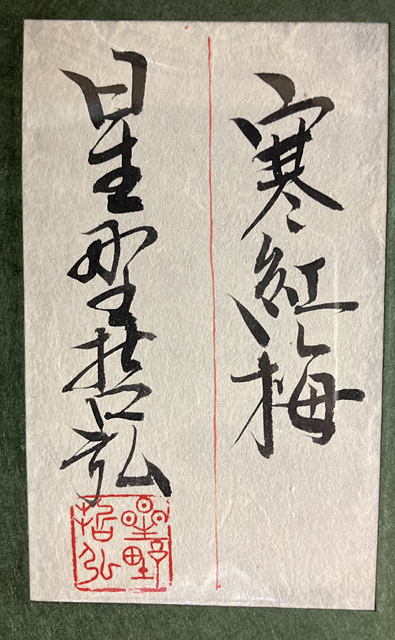 寒紅梅
星野哲弘
星野
哲弘